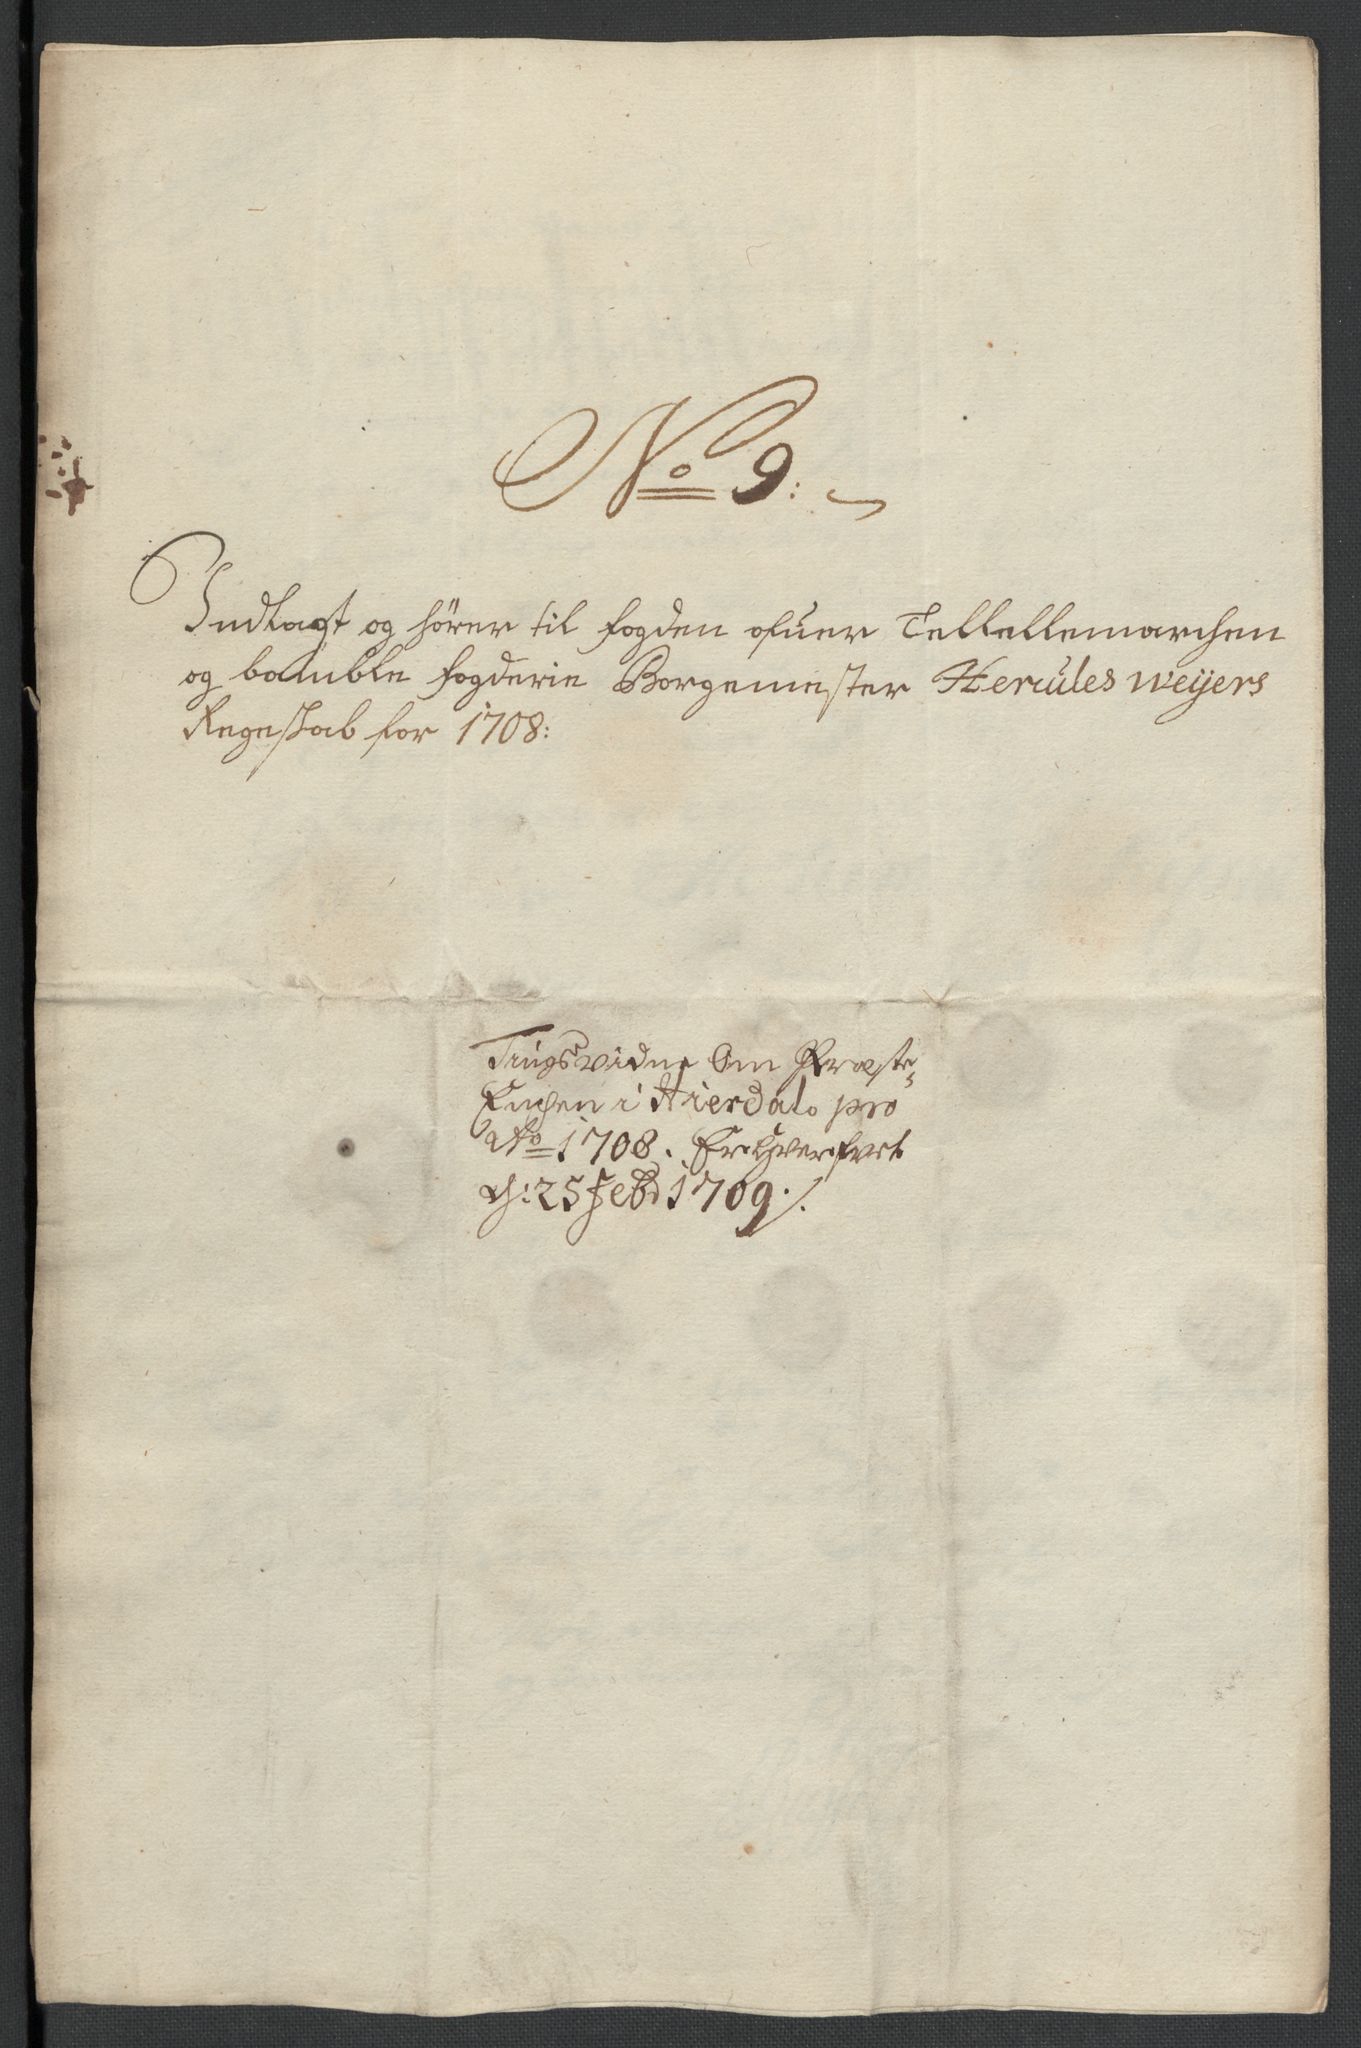 No 9:
Indlagt og hörer til fogden ofuer Tellellemarchen
og bamble fogderie Borgemester Hercules weyers
Regeskab for 1708:
Tingsvidne Om Præste
Enchen i Hierdal pro
Ao 1708.
d: 25 Feb 1709 ./.